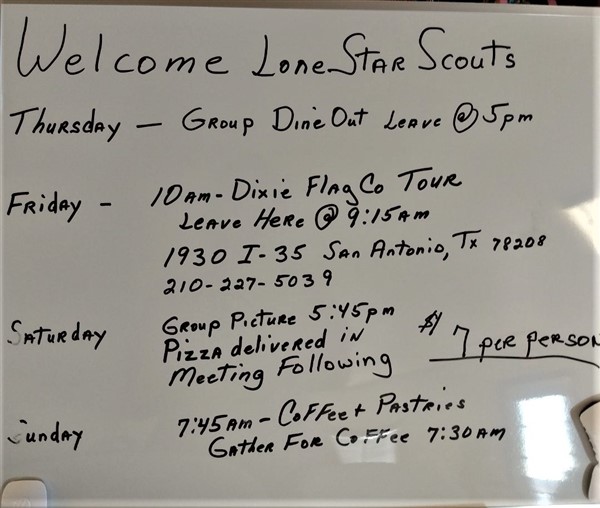 Welcome LoneStar Scouts
Thursday — Group Dine Out Leave @ 5pm
Friday - 10am - Dixie Flag Co Tour
Leave Here @ 9:15am
1930 I-35 San Antonio, Tx 78208
210-227-5039
Saturday Group Picture 5:45pm
Pizza delivered in $7 per person
Meeting Following
Sunday 7:45am - Coffee + Pastries
Gather For Coffee 7:30am